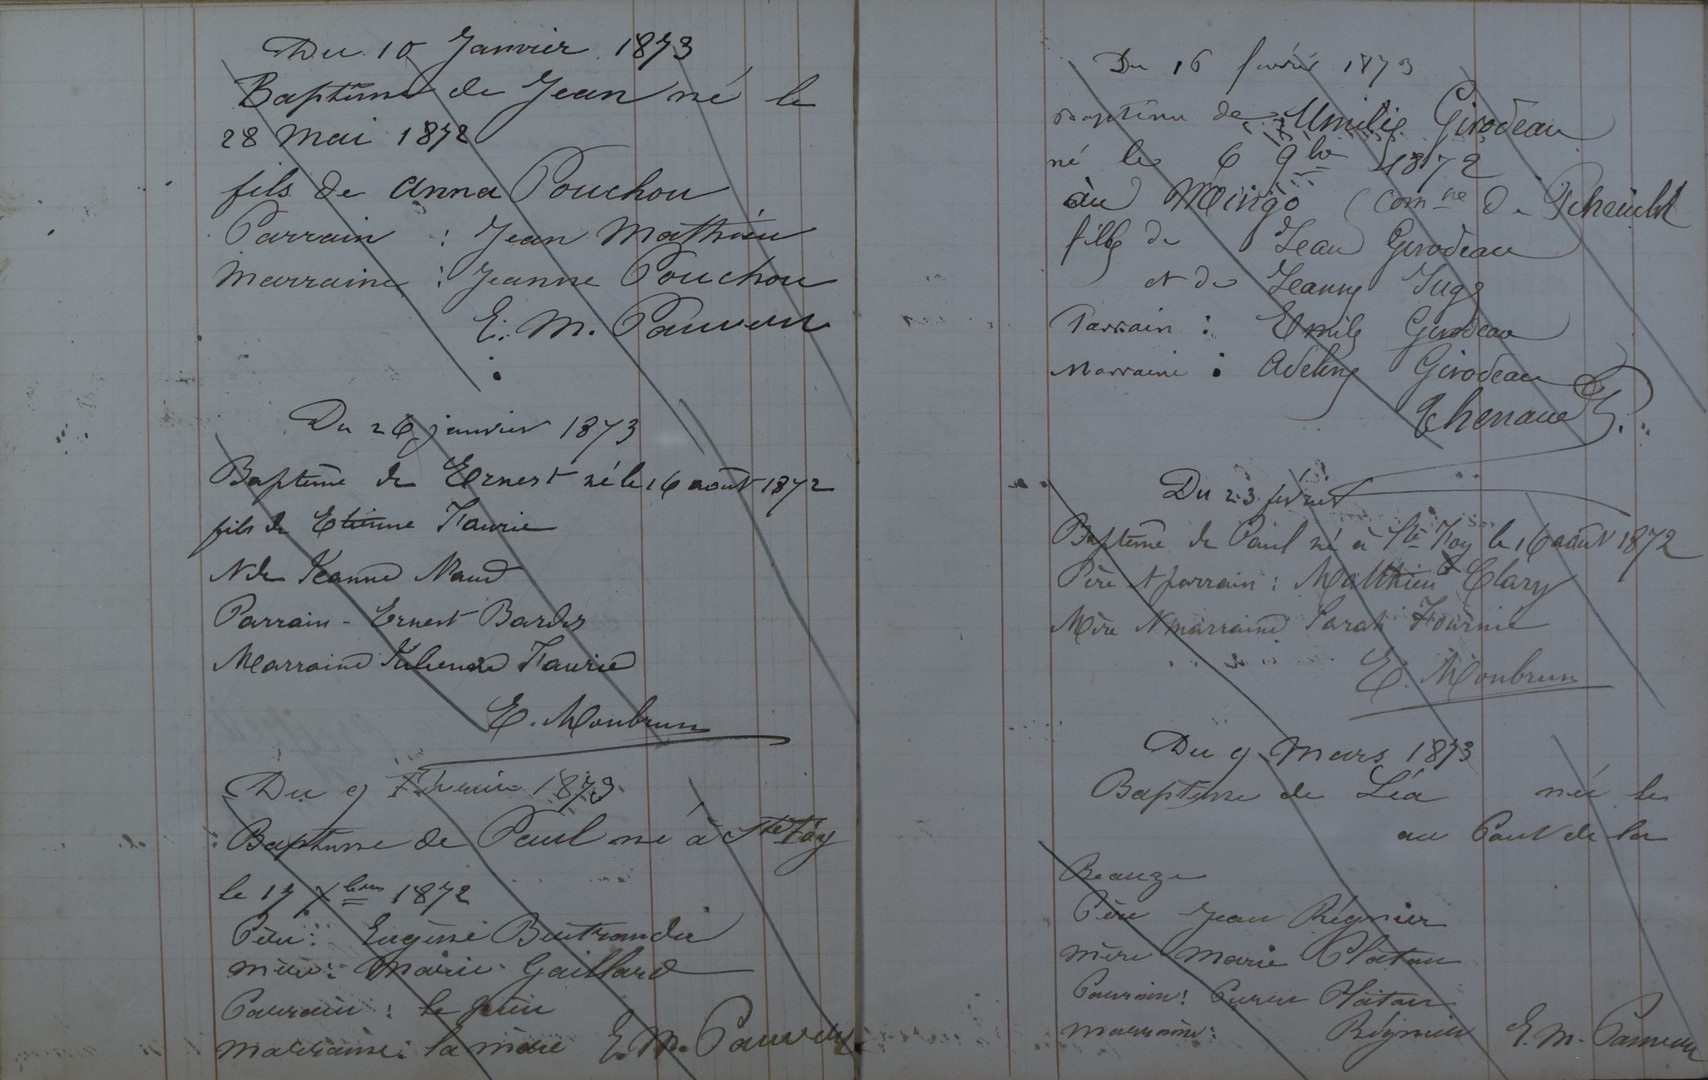 Du 10 Janvier 1873
Baptême de Jean né le
28 Mai 1872
fils de Anna Pouchou
Parrain : Jean Mathieu
Marraine : Jeanne Pouchou
E. M.
Du 26 janvier 1873
Baptême de Ernest né le 16 août 1872
fils de Etienne Faurie
& de Jeanne Naud
Parrain - Ernest Bardes
Marraine Faurie
E. Monbrun
Du 9 Février 1873
Baptême de Paul né à Ste Foy
le 17 Xbre 1872
Père : Eugène
mère : Marie Gaillard
Parrain : le père
marraine : la mère E. M.
Du 16 février 1873
Baptême de Emilie Girodeau
né le 6 9bre 1872
au (Comne de
fille de Jean Girodeau
et de Jeanne
Parrain : Emile Girodeau
Marraine : Adeline Girodeau
Du 23 février
Baptême de Paul né à Ste Foy le 16 août 1872
Père & parrain : Matthieu Clary
Mère & marraine Sarah Fournié
E. Monbrun
Du 9 Mars 1873
Baptême de Léa née le
au Pont de la
Beauze
Père Jean Régnier
mère Marie Platon
Parrain : Platon
marraine : Régnier E. M.